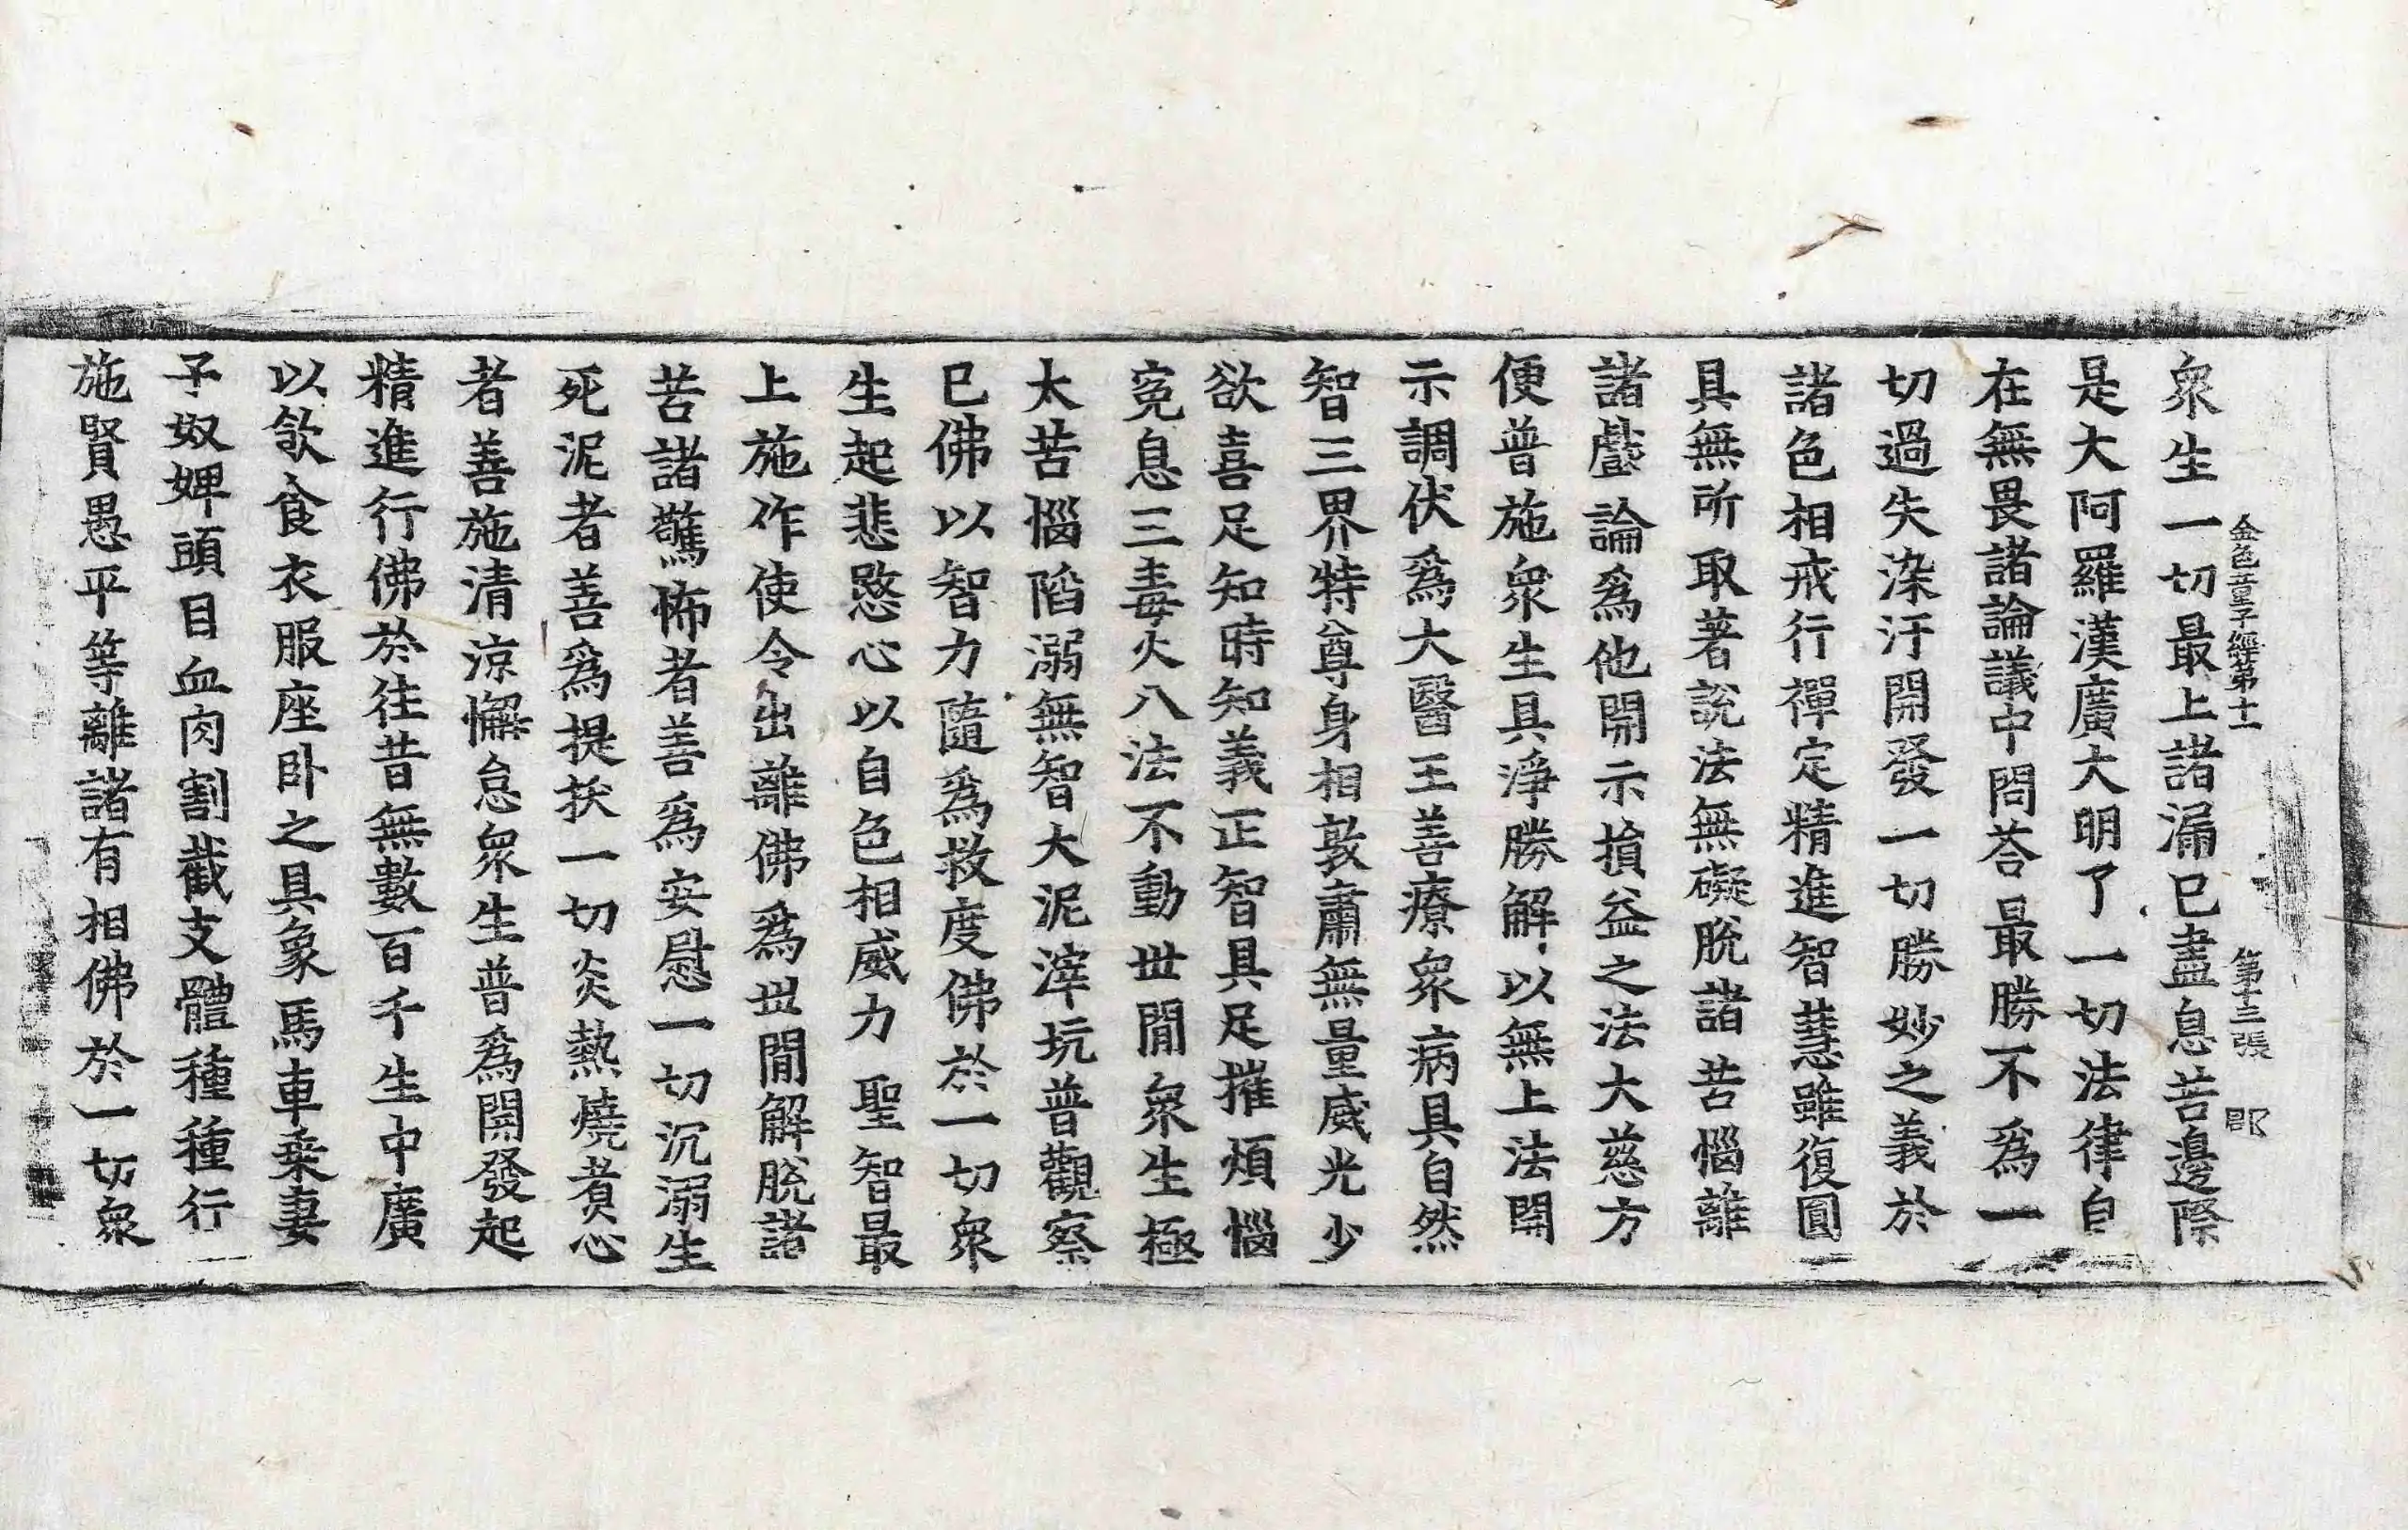 金色童子經第十一 第十三張 郡
衆生一切最上諸漏已盡息苦邊際
是大阿羅漢廣大明了一切法律自
在無畏諸論議中問荅最勝不爲一
切過失染汙開發一切勝妙之義於
諸色相戒行禪定精進智慧雖復圓
具無所取著說法無礙脫諸苦惱離
諸戲論爲他開示損益之法大慈方
便普施衆生具淨勝解以無上法開
示調伏爲大醫王善療衆病具自然
智三界特尊身相敦肅無量威光少
欲喜足知時知義正智具足摧煩惱
寃息三毒火八法不動世閒衆生極
大苦惱陷溺無智大泥滓坑普觀察
已佛以智力隨爲救度佛於一切衆
生起悲愍心以自色相威力聖智最
上施作使令出離佛爲世閒解脫諸
苦諸驚怖者善爲安慰一切沉溺生
死泥者善爲提扶一切炎熱燒煑心
者善施清涼懈怠衆生普爲開發起
精進行佛於往昔無數百千生中廣
以飮食衣服座卧之具象馬車乗妻
子奴婢頭目血肉割截支體種種行
施賢愚平等離諸有相佛於一切衆